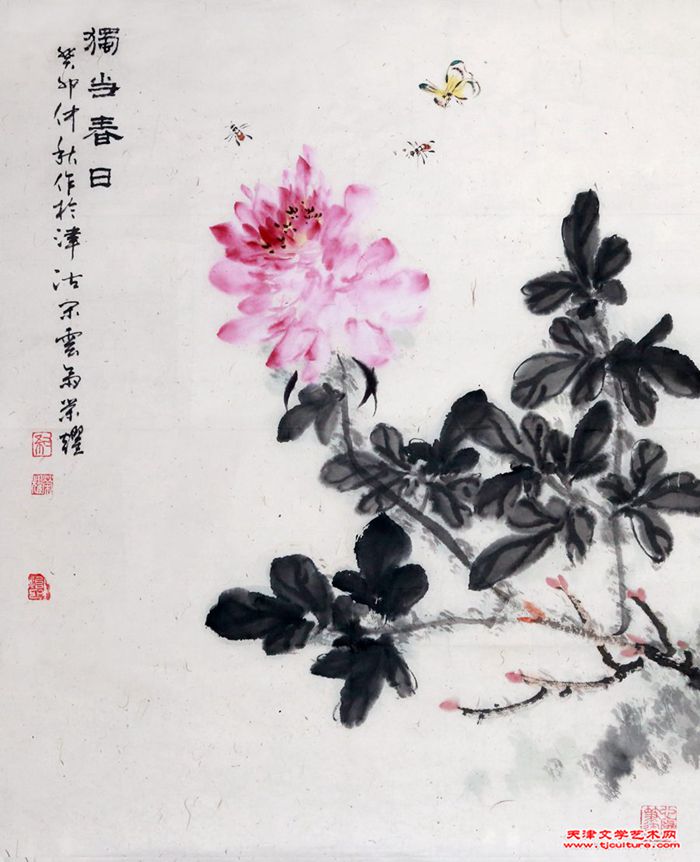 獨当春日
癸卯仲秋作於津沽宋雲為荣耀
天津文学艺术网
www.tjculture.com